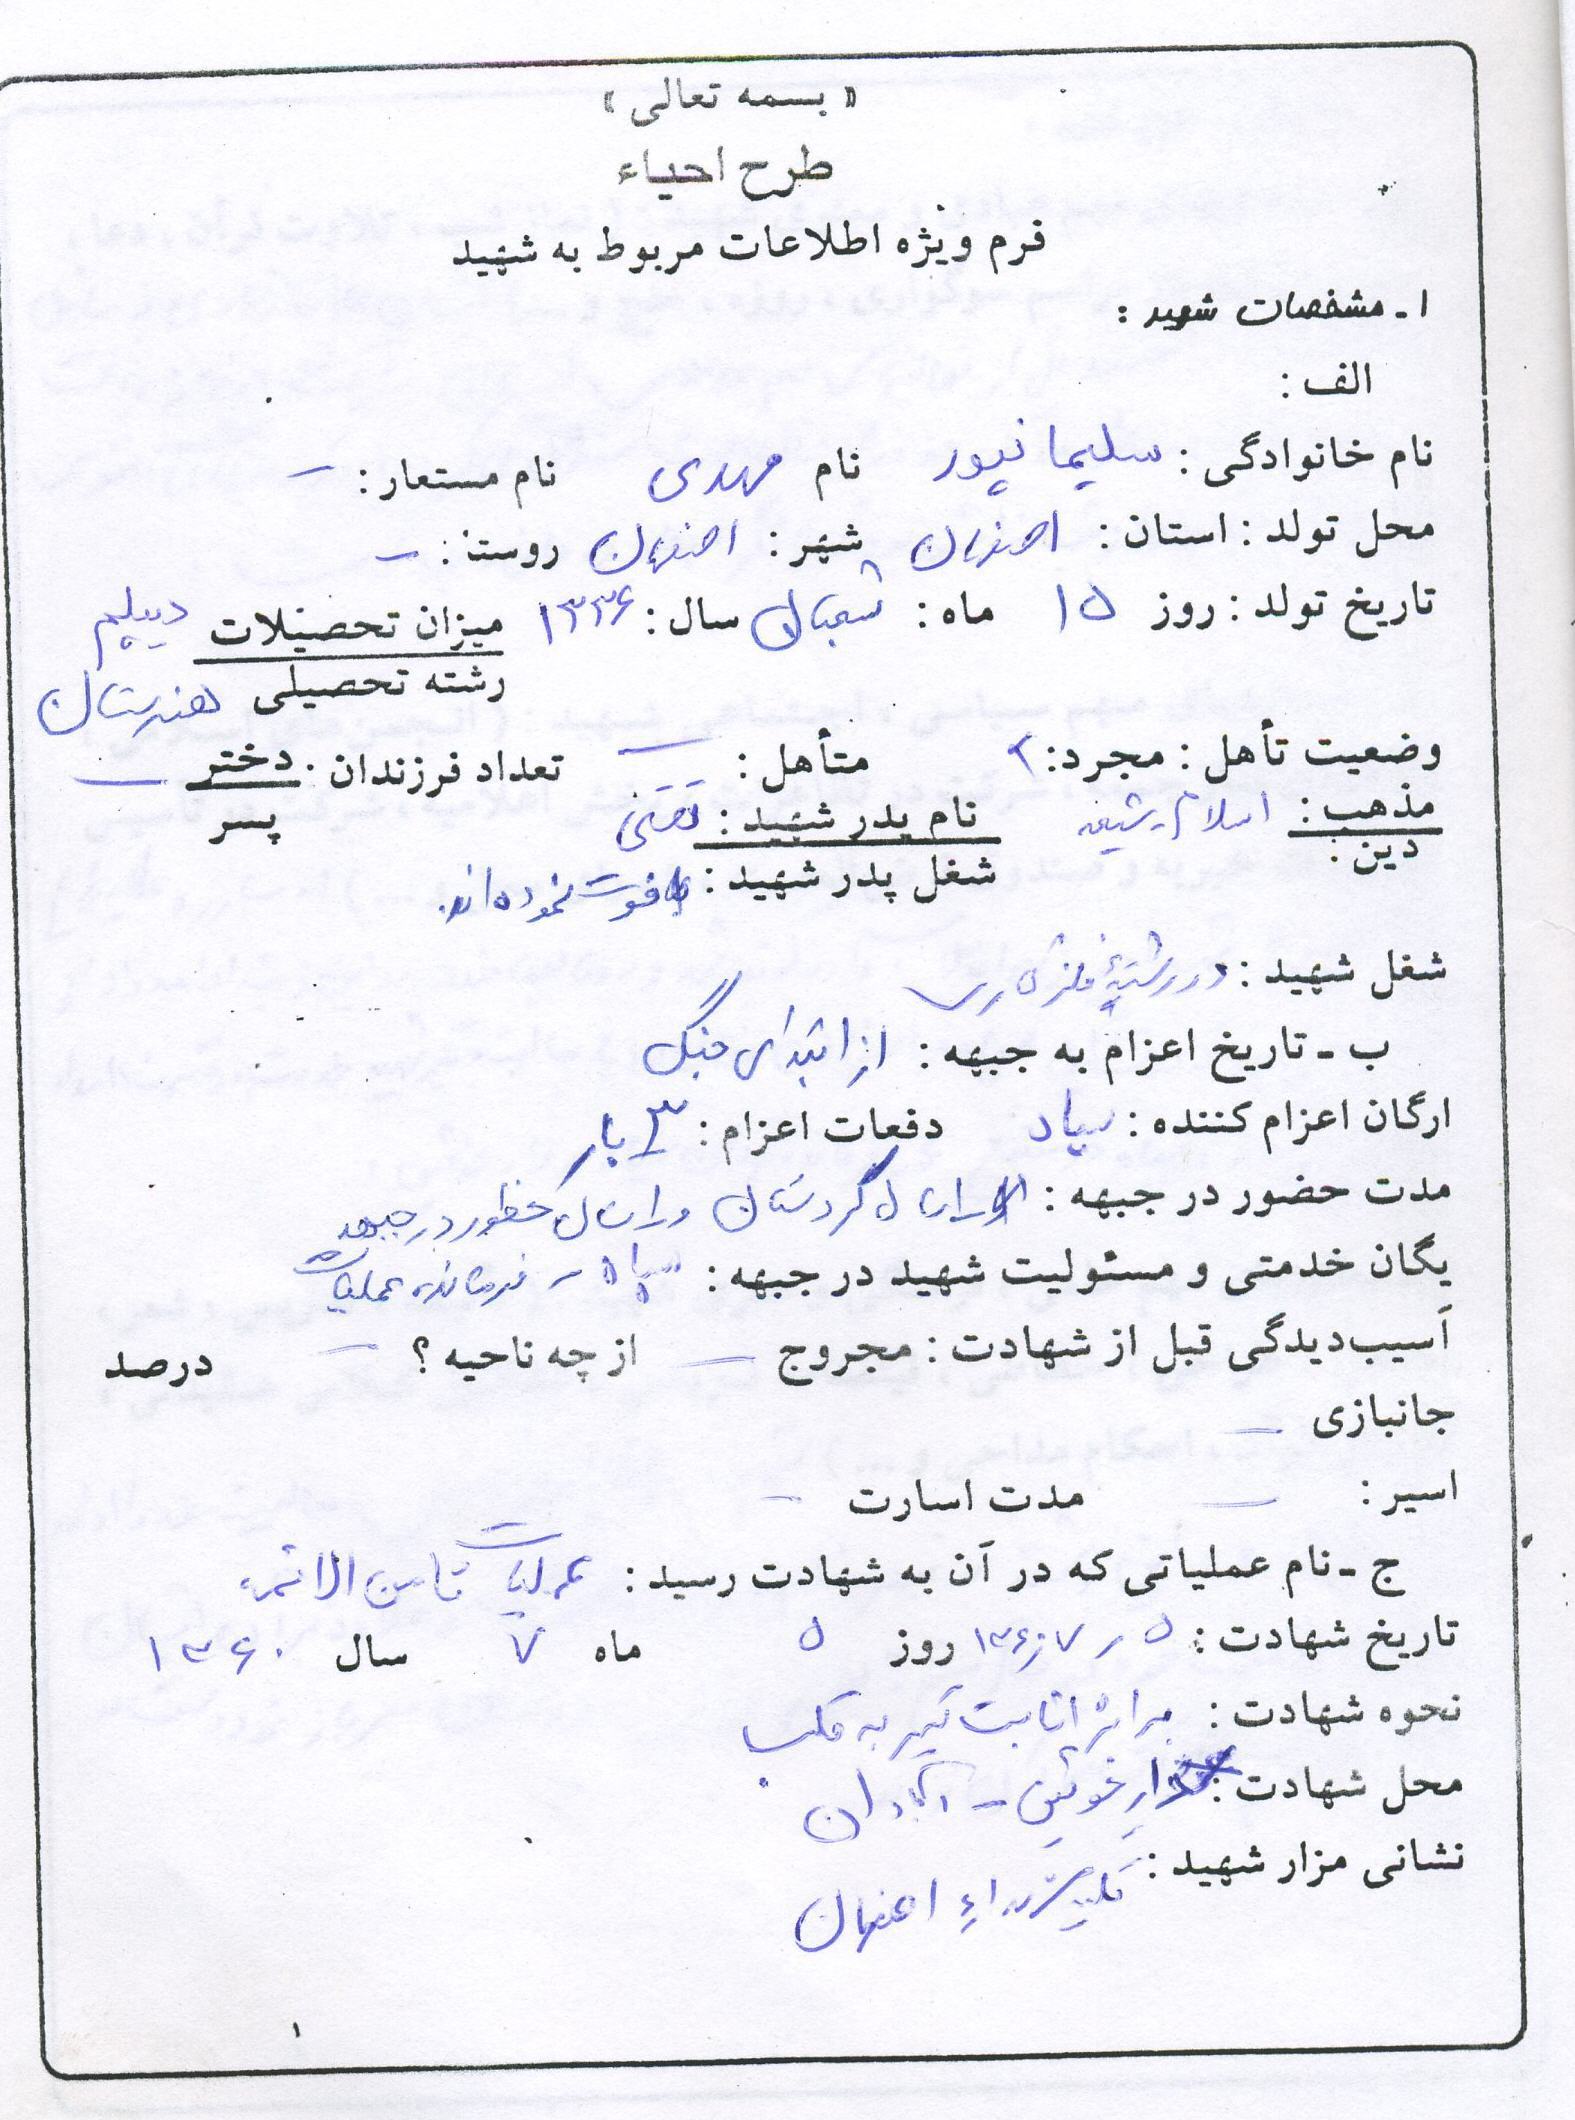 « بسمه تعالی »
طرح احیاء
فرم ویژه اطلاعات مربوط به شهید
۱ ـ مشخصات شهید :
الف :
نام خانوادگی : سلیمانپور نام مهدی نام مستعار : –
محل تولد : استان : اصفهان شهر : اصفهان روستا : –
تاریخ تولد : روز ۱۵ ماه : شعبان سال : ۱۳۳۶ میزان تحصیلات دیپلم
رشته تحصیلی هنرستان
وضعیت تأهل : مجرد : متأهل : – تعداد فرزندان . دختر –
پسر
مذهب : اسلام شیعه نام پدر شهید : تقی
دین . شغل پدر شهید : فوت نموده‌اند.
شغل شهید : در رشتهٔ فلزکاری
ب ـ تاریخ اعزام به جبهه : از ابتدای جنگ
ارگان اعزام کننده : سپاه دفعات اعزام : ۳ بار
مدت حضور در جبهه : کردستان حظور در جبهه
یگان خدمتی و مسئولیت شهید در جبهه : سپاه – فرمانده عملیات
آسیب‌دیدگی قبل از شهادت : مجروح – از چه ناحیه ؟ – درصد
جانبازی –
اسیر : – مدت اسارت –
ج ـ نام عملیاتی که در آن به شهادت رسید : عملیات ثامن الائمه
تاریخ شهادت : ۵ ر ۷ ر ۱۳۶۰ روز ۵ ماه ۷ سال ۱۳۶۰
نحوه شهادت : بر اثر اثابت تیر به قلب
محل شهادت : دارخوئین – آبادان
نشانی مزار شهید : گلستان شهداء اصفهان
۱